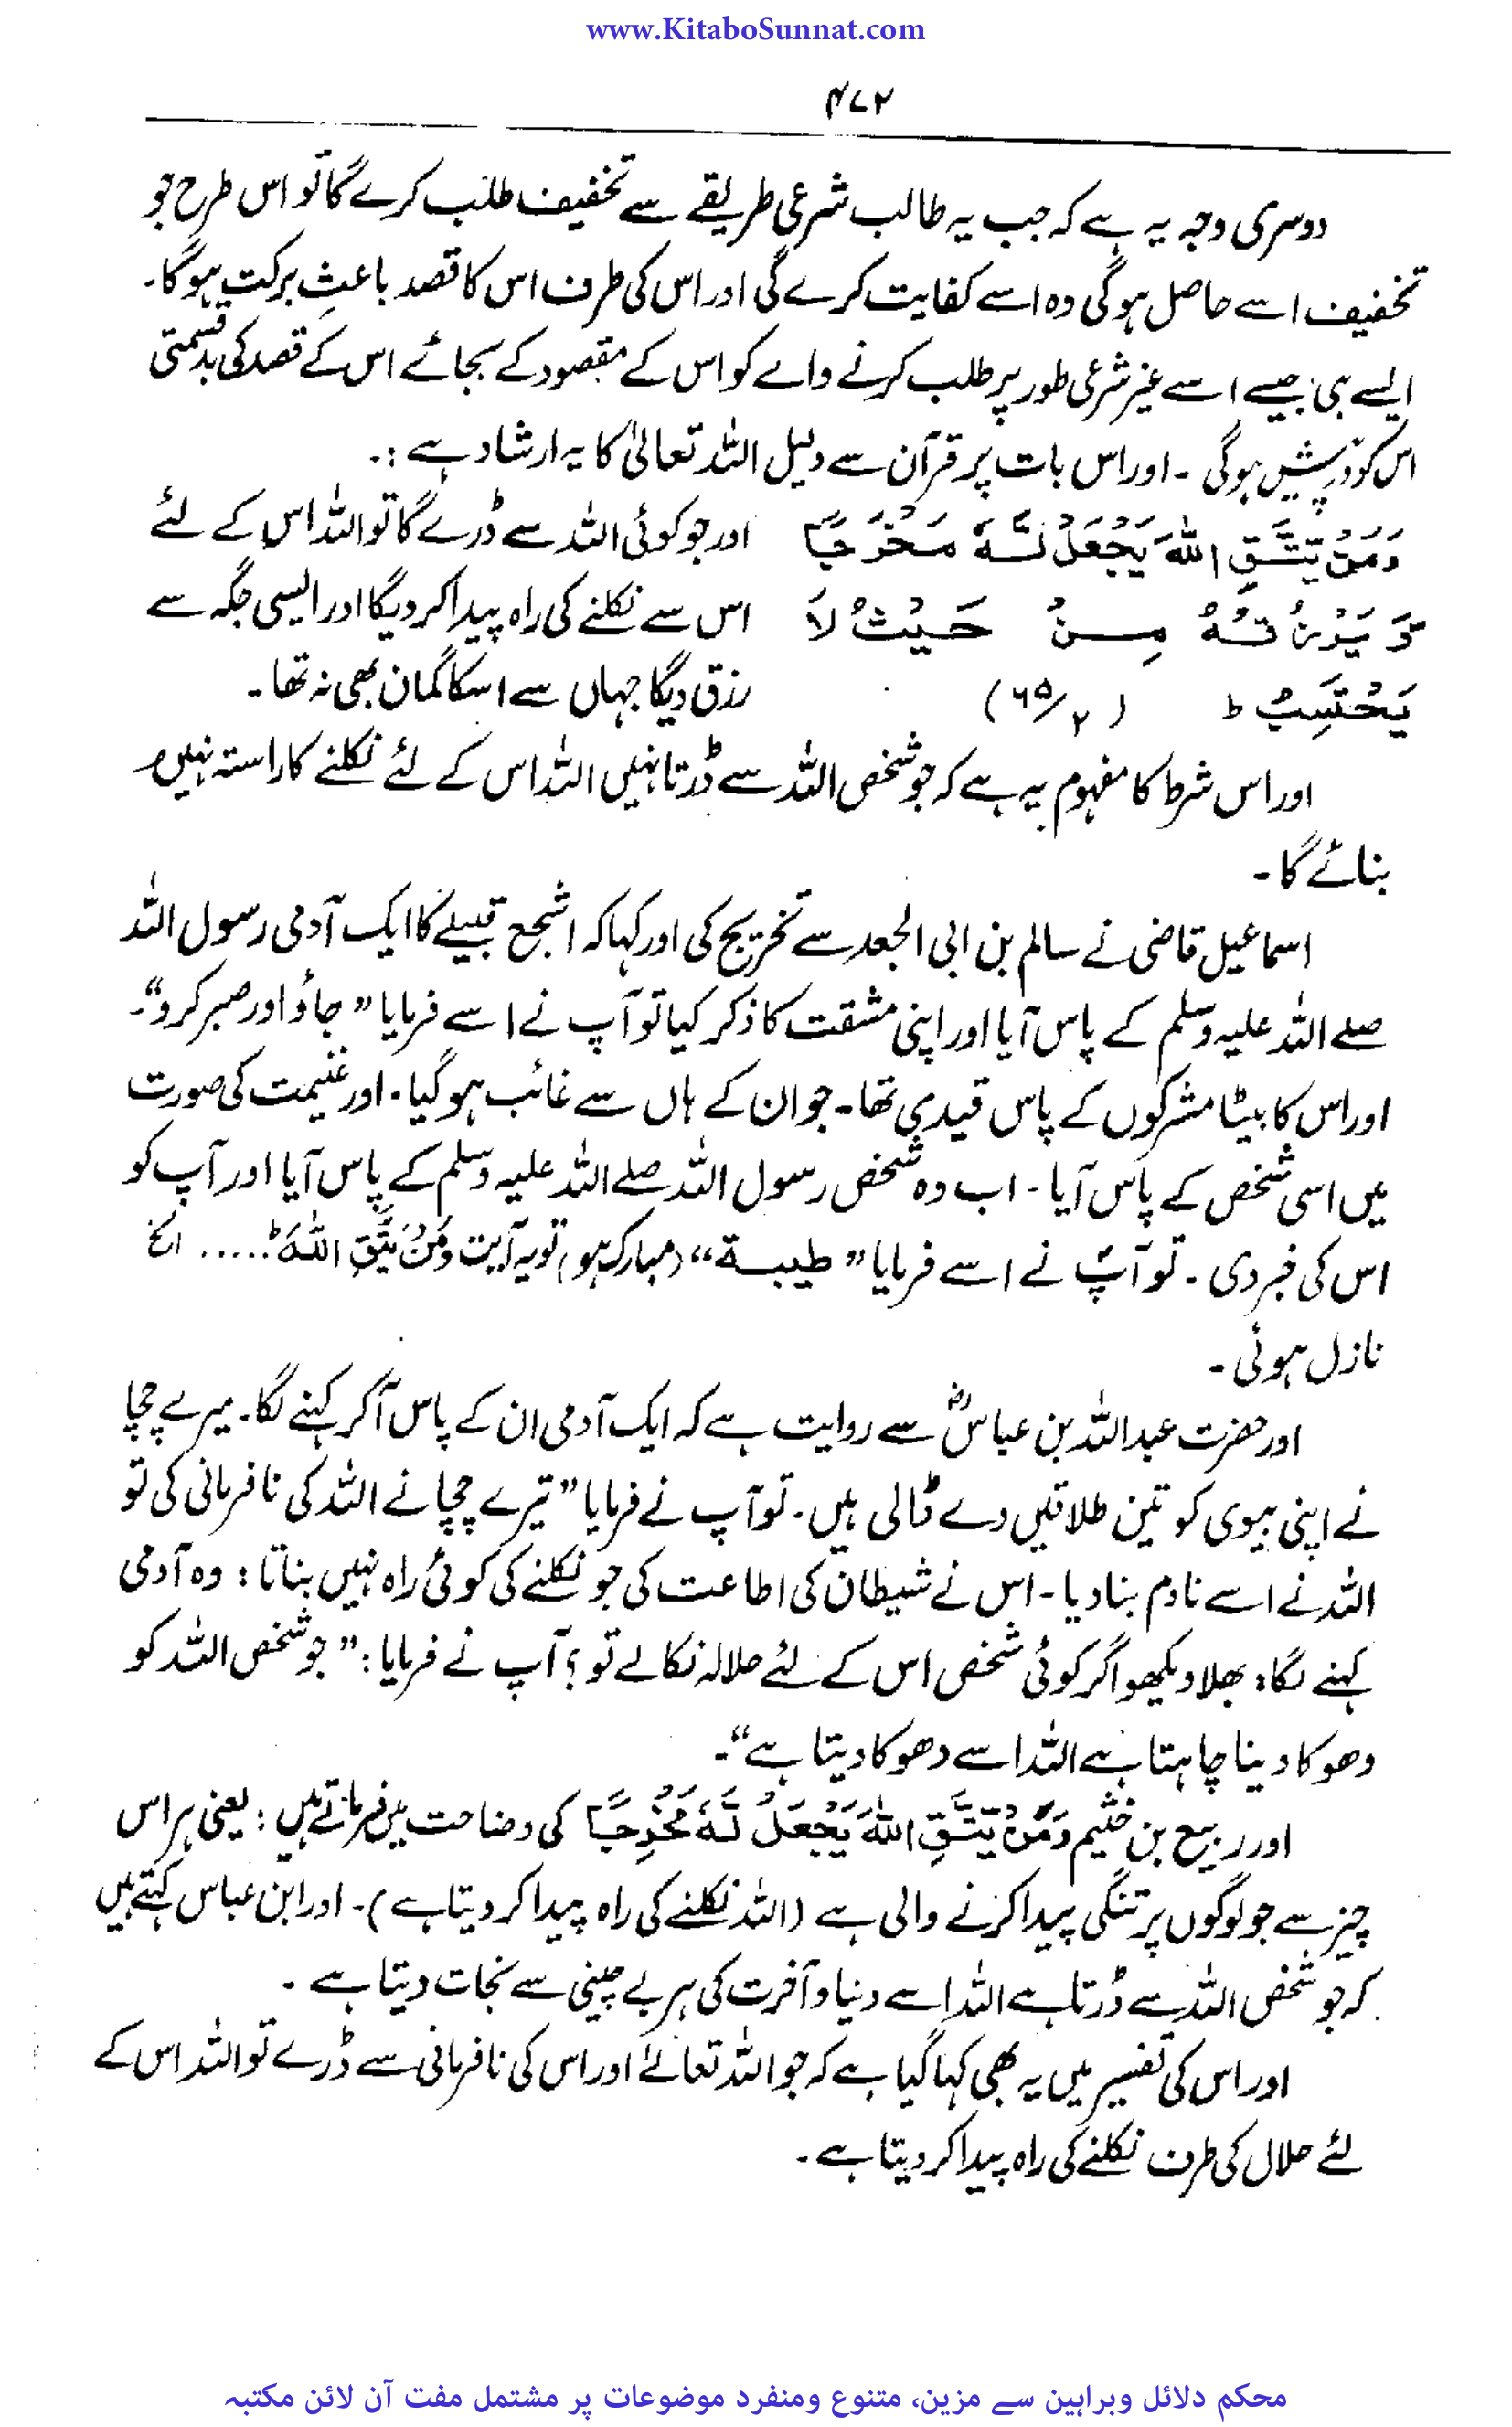 www.KitaboSunnat.com
۴۷۲
دوسری وجہ یہ ہے کہ جب یہ طالب شرعی طریقے سے تخفیف طلب کرے گا تو اس طرح جو
تخفیف اسے حاصل ہو گی وہ اسے کفایت کرے گی اور اس کی طرف اس کا قصد باعثِ برکت ہو گا۔
ایسے ہی جیسے اسے غیر شرعی طور پر طلب کرنے والے کو اس کے مقصود کے بجائے اس کے قصد کی بدقسمتی
اس کو درپیش ہو گی ۔ اور اس بات پر قرآن سے دلیل اللہ تعالیٰ کا یہ ارشاد ہے :۔
وَمَنْ يَتَّقِ اللهَ يَجْعَلْ لَّهُ مَخْرَجًا اور جو کوئی اللہ سے ڈرے گا تو اللہ اس کے لئے
وَّ يَرْزُقْهُ مِنْ حَيْثُ لَا اس سے نکلنے کی راہ پیدا کر دیگا اور ایسی جگہ سے
يَحْتَسِبُ ط (۶۵/۲) رزق دیگا جہاں سے اسکا گمان بھی نہ تھا ۔
اور اس شرط کا مفہوم یہ ہے کہ جو شخص اللہ سے ڈرتا نہیں اللہ اس کے لئے نکلنے کا راستہ نہیں
بنائے گا ۔
اسماعیل قاضی نے سالم بن ابی الجعد سے تخریج کی اور کہا کہ اشجع قبیلے کا ایک آدمی رسول اللہ
صلے اللہ علیہ وسلم کے پاس آیا اور اپنی مشقت کا ذکر کیا تو آپ نے اسے فرمایا ” جاؤ اور صبر کرو“۔
اور اس کا بیٹا مشرکوں کے پاس قیدی تھا ۔ جو ان کے ہاں سے غائب ہو گیا ۔ اور غنیمت کی صورت
میں اسی شخص کے پاس آیا ۔ اب وہ شخص رسول اللہ صلے اللہ علیہ وسلم کے پاس آیا اور آپ کو
اس کی خبر دی ۔ تو آپؐ نے اسے فرمایا ” طيبة “ (مبارک ہو) تو یہ آیت وَمَنْ يَتَّقِ اللهَ ..... الخ
نازل ہوئی ۔
اور حضرت عبداللہ بن عباسؓ سے روایت ہے کہ ایک آدمی ان کے پاس آ کر کہنے لگا ۔ میرے چچا
نے اپنی بیوی کو تین طلاقیں دے ڈالی ہیں ۔ تو آپ نے فرمایا ” تیرے چچا نے اللہ کی نافرمانی کی تو
اللہ نے اسے نادم بنا دیا ۔ اس نے شیطان کی اطاعت کی جو نکلنے کی کوئی راہ نہیں بناتا : وہ آدمی
کہنے لگا : بھلا دیکھو اگر کوئی شخص اس کے لئے حلالہ نکالے تو ؟ آپ نے فرمایا : ” جو شخص اللہ کو
دھوکا دینا چاہتا ہے اللہ اسے دھوکا دیتا ہے “۔
اور ربیع بن خثیم وَمَنْ يَتَّقِ اللهَ يَجْعَلْ لَّهُ مَخْرَجًا کی وضاحت میں فرماتے ہیں : یعنی ہر اس
چیز سے جو لوگوں پر تنگی پیدا کرنے والی ہے (اللہ نکلنے کی راہ پیدا کر دیتا ہے) ۔ اور ابن عباس کہتے ہیں
کہ جو شخص اللہ سے ڈرتا ہے اللہ اسے دنیا و آخرت کی ہر بے چینی سے نجات دیتا ہے ۔
اور اس کی تفسیر میں یہ بھی کہا گیا ہے کہ جو اللہ تعالےٰ اور اس کی نافرمانی سے ڈرے تو اللہ اس کے
لئے حلال کی طرف نکلنے کی راہ پیدا کر دیتا ہے ۔
محکم دلائل وبراہین سے مزین، متنوع ومنفرد موضوعات پر مشتمل مفت آن لائن مکتبہ